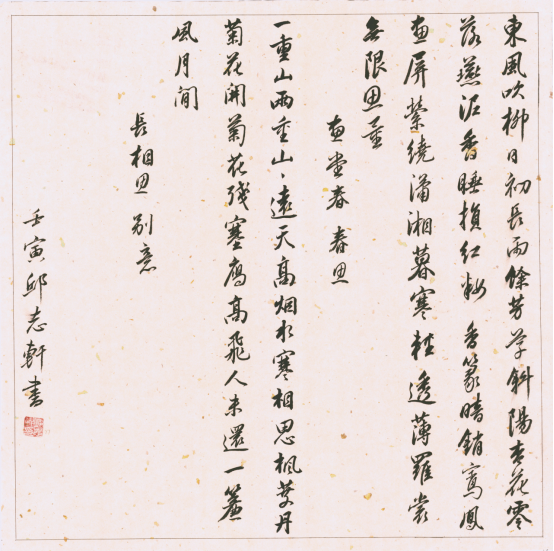 東風吹柳日初長雨餘芳草斜陽杏花零
落燕泥香睡損紅粧 香篆暗銷鸞鳳
畫屏縈繞瀟湘暮寒輕透薄羅裳
無限思量
畫堂春 春思
一重山兩重山、遠天高烟水寒相思楓葉丹
菊花開菊花殘塞鴈高飛人未還一簾
風月閒
長相思 別意
壬寅邱志軒書